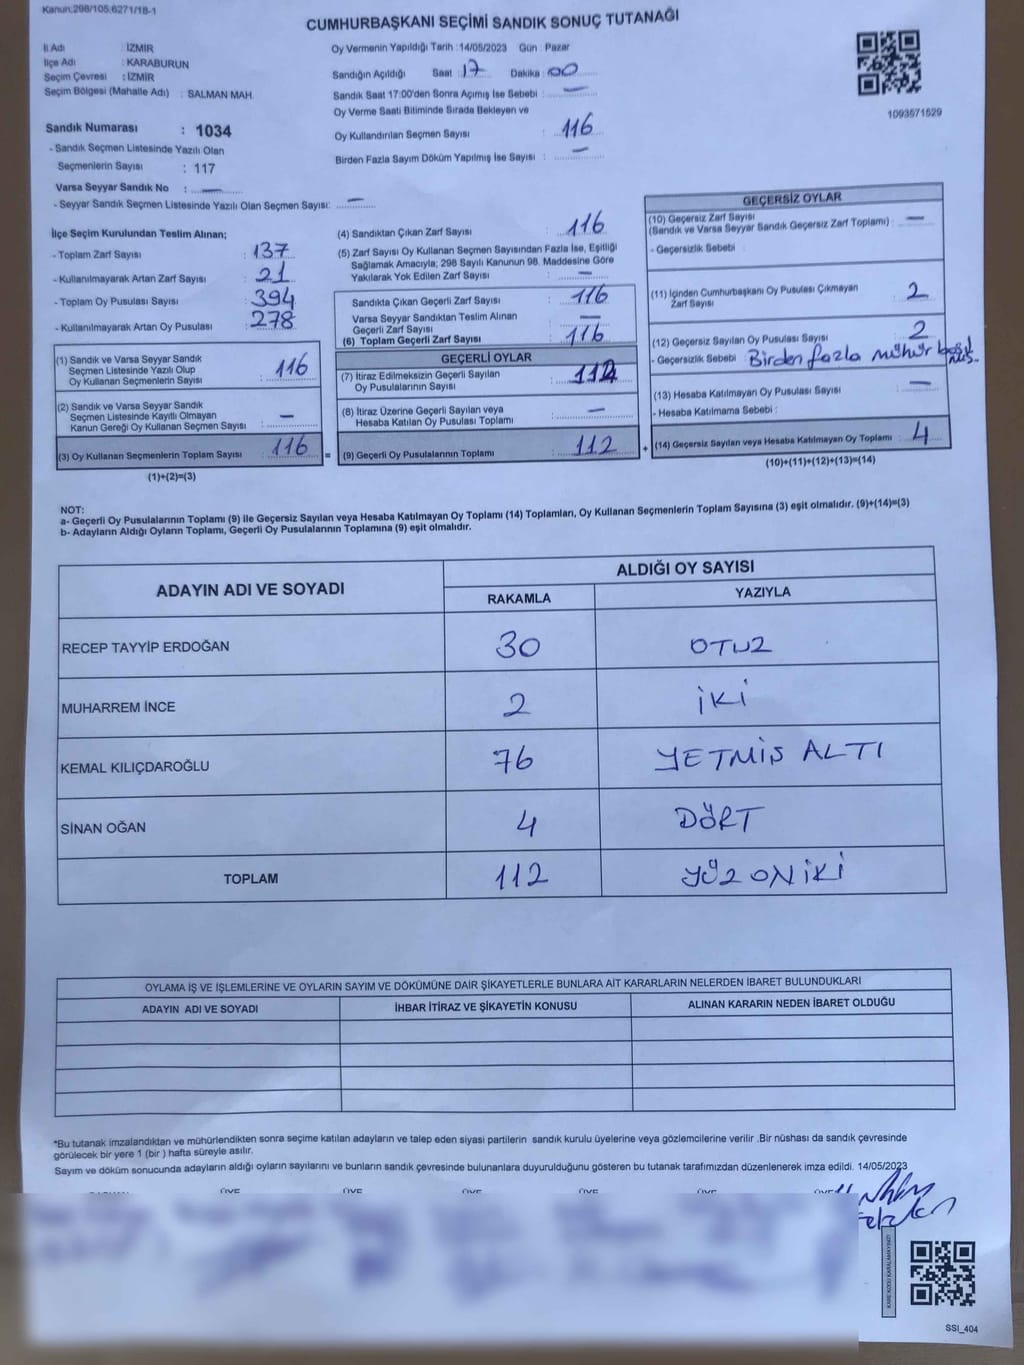 Kanun:298/105.6271/18-1
CUMHURBAŞKANI SEÇİMİ SANDIK SONUÇ TUTANAĞI
İl Adı : İZMİR
İlçe Adı : KARABURUN
Seçim Çevresi : İZMİR
Seçim Bölgesi (Mahalle Adı) : SALMAN MAH.
Oy Vermenin Yapıldığı Tarih :14/05/2023 Gün : Pazar
Sandığın Açıldığı Saat :17 Dakika :00
Sandık Saat 17:00'den Sonra Açılmış İse Sebebi : —
Oy Verme Saati Bitiminde Sırada Bekleyen ve
Oy Kullandırılan Seçmen Sayısı : 116
Birden Fazla Sayım Döküm Yapılmış İse Sayısı : —
1093571529
Sandık Numarası : 1034
- Sandık Seçmen Listesinde Yazılı Olan
Seçmenlerin Sayısı : 117
Varsa Seyyar Sandık No : —
- Seyyar Sandık Seçmen Listesinde Yazılı Olan Seçmen Sayısı: —
İlçe Seçim Kurulundan Teslim Alınan;
- Toplam Zarf Sayısı : 137
- Kullanılmayarak Artan Zarf Sayısı : 21
- Toplam Oy Pusulası Sayısı : 394
- Kullanılmayarak Artan Oy Pusulası : 278
(1) Sandık ve Varsa Seyyar Sandık
Seçmen Listesinde Yazılı Olup
Oy Kullanan Seçmenlerin Sayısı : 116
(2) Sandık ve Varsa Seyyar Sandık
Seçmen Listesinde Kayıtlı Olmayan
Kanun Gereği Oy Kullanan Seçmen Sayısı : —
(3) Oy Kullanan Seçmenlerin Toplam Sayısı : 116
(1)+(2)=(3)
(4) Sandıktan Çıkan Zarf Sayısı : 116
(5) Zarf Sayısı Oy Kullanan Seçmen Sayısından Fazla İse, Eşitliği
Sağlamak Amacıyla; 298 Sayılı Kanunun 98. Maddesine Göre
Yakılarak Yok Edilen Zarf Sayısı : —
Sandıkta Çıkan Geçerli Zarf Sayısı : 116
Varsa Seyyar Sandıktan Teslim Alınan
Geçerli Zarf Sayısı : —
(6) Toplam Geçerli Zarf Sayısı : 116
GEÇERLİ OYLAR
(7) İtiraz Edilmeksizin Geçerli Sayılan
Oy Pusulalarının Sayısı : 112
(8) İtiraz Üzerine Geçerli Sayılan veya
Hesaba Katılan Oy Pusulası Toplamı : —
= (9) Geçerli Oy Pusulalarının Toplamı : 112
GEÇERSİZ OYLAR
(10) Geçersiz Zarf Sayısı
(Sandık ve Varsa Seyyar Sandık Geçersiz Zarf Toplamı) : —
- Geçersizlik Sebebi :
(11) İçinden Cumhurbaşkanı Oy Pusulası Çıkmayan
Zarf Sayısı : 2
(12) Geçersiz Sayılan Oy Pusulası Sayısı : 2
- Geçersizlik Sebebi : Birden fazla mühür basılmış.
(13) Hesaba Katılmayan Oy Pusulası Sayısı : —
- Hesaba Katılmama Sebebi :
+ (14) Geçersiz Sayılan veya Hesaba Katılmayan Oy Toplamı : 4
(10)+(11)+(12)+(13)=(14)
NOT:
a- Geçerli Oy Pusulalarının Toplamı (9) ile Geçersiz Sayılan veya Hesaba Katılmayan Oy Toplamı (14) Toplamları, Oy Kullanan Seçmenlerin Toplam Sayısına (3) eşit olmalıdır. (9)+(14)=(3)
b- Adayların Aldığı Oyların Toplamı, Geçerli Oy Pusulalarının Toplamına (9) eşit olmalıdır.
ADAYIN ADI VE SOYADI ALDIĞI OY SAYISI
RAKAMLA YAZIYLA
RECEP TAYYİP ERDOĞAN 30 OTUZ
MUHARREM İNCE 2 İKİ
KEMAL KILIÇDAROĞLU 76 YETMİŞ ALTI
SİNAN OĞAN 4 DÖRT
TOPLAM 112 YÜZ ON İKİ
OYLAMA İŞ VE İŞLEMLERİNE VE OYLARIN SAYIM VE DÖKÜMÜNE DAİR ŞİKAYETLERLE BUNLARA AİT KARARLARIN NELERDEN İBARET BULUNDUKLARI
ADAYIN ADI VE SOYADI İHBAR İTİRAZ VE ŞİKAYETİN KONUSU ALINAN KARARIN NEDEN İBARET OLDUĞU
*Bu tutanak imzalandıktan ve mühürlendikten sonra seçime katılan adayların ve talep eden siyasi partilerin sandık kurulu üyelerine veya gözlemcilerine verilir .Bir nüshası da sandık çevresinde
görülecek bir yere 1 (bir ) hafta süreyle asılır.
Sayım ve döküm sonucunda adayların aldığı oyların sayılarını ve bunların sandık çevresinde bulunanlara duyurulduğunu gösteren bu tutanak tarafımızdan düzenlenerek imza edildi. 14/05/2023
ÜYE ÜYE ÜYE ÜYE ÜYE ÜYE
KARE KODU KARALAMAYINIZ!
SSI_404